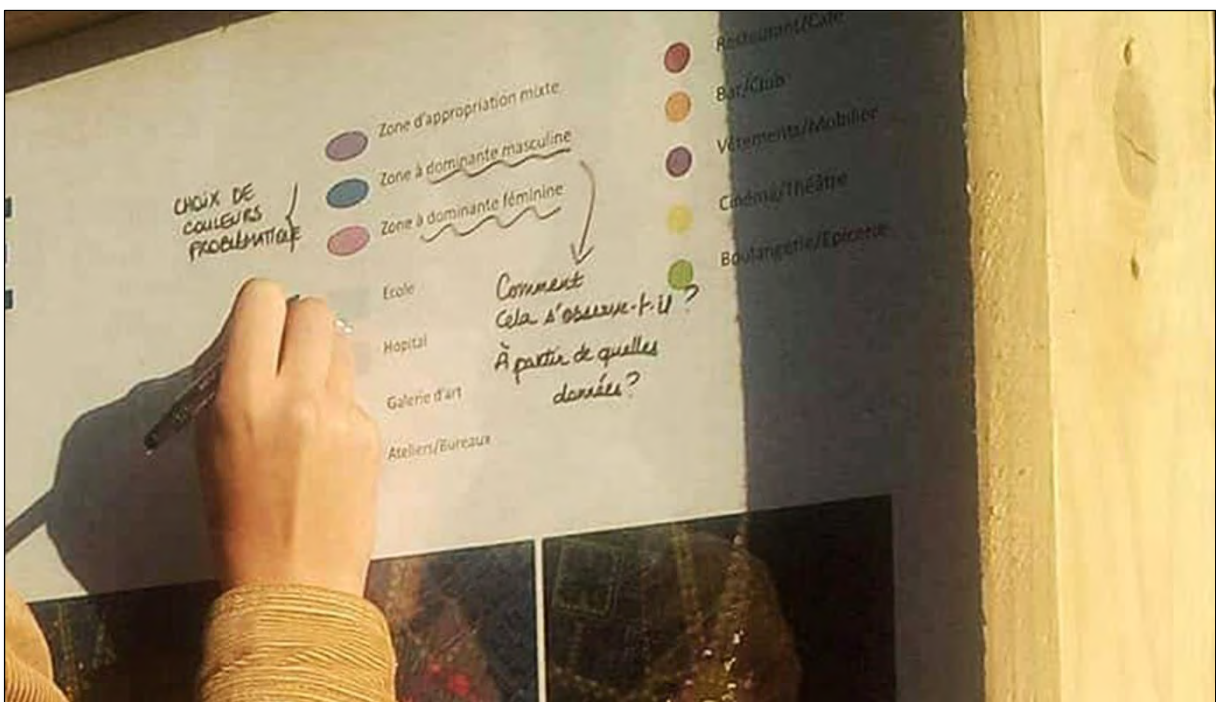 Zone d'appropriation mixte
Zone à dominante masculine
Zone à dominante féminine
CHOIX DE
COULEURS
PROBLÉMATIQUE
Ecole
Hopital
Galerie d'art
Ateliers/Bureaux
Comment
Cela s'observe-t-il ?
À partir de quelles
données ?
Restaurant/Café
Bar/Club
Vêtements/Mobilier
Cinéma/Théâtre
Boulangerie/Epicerie